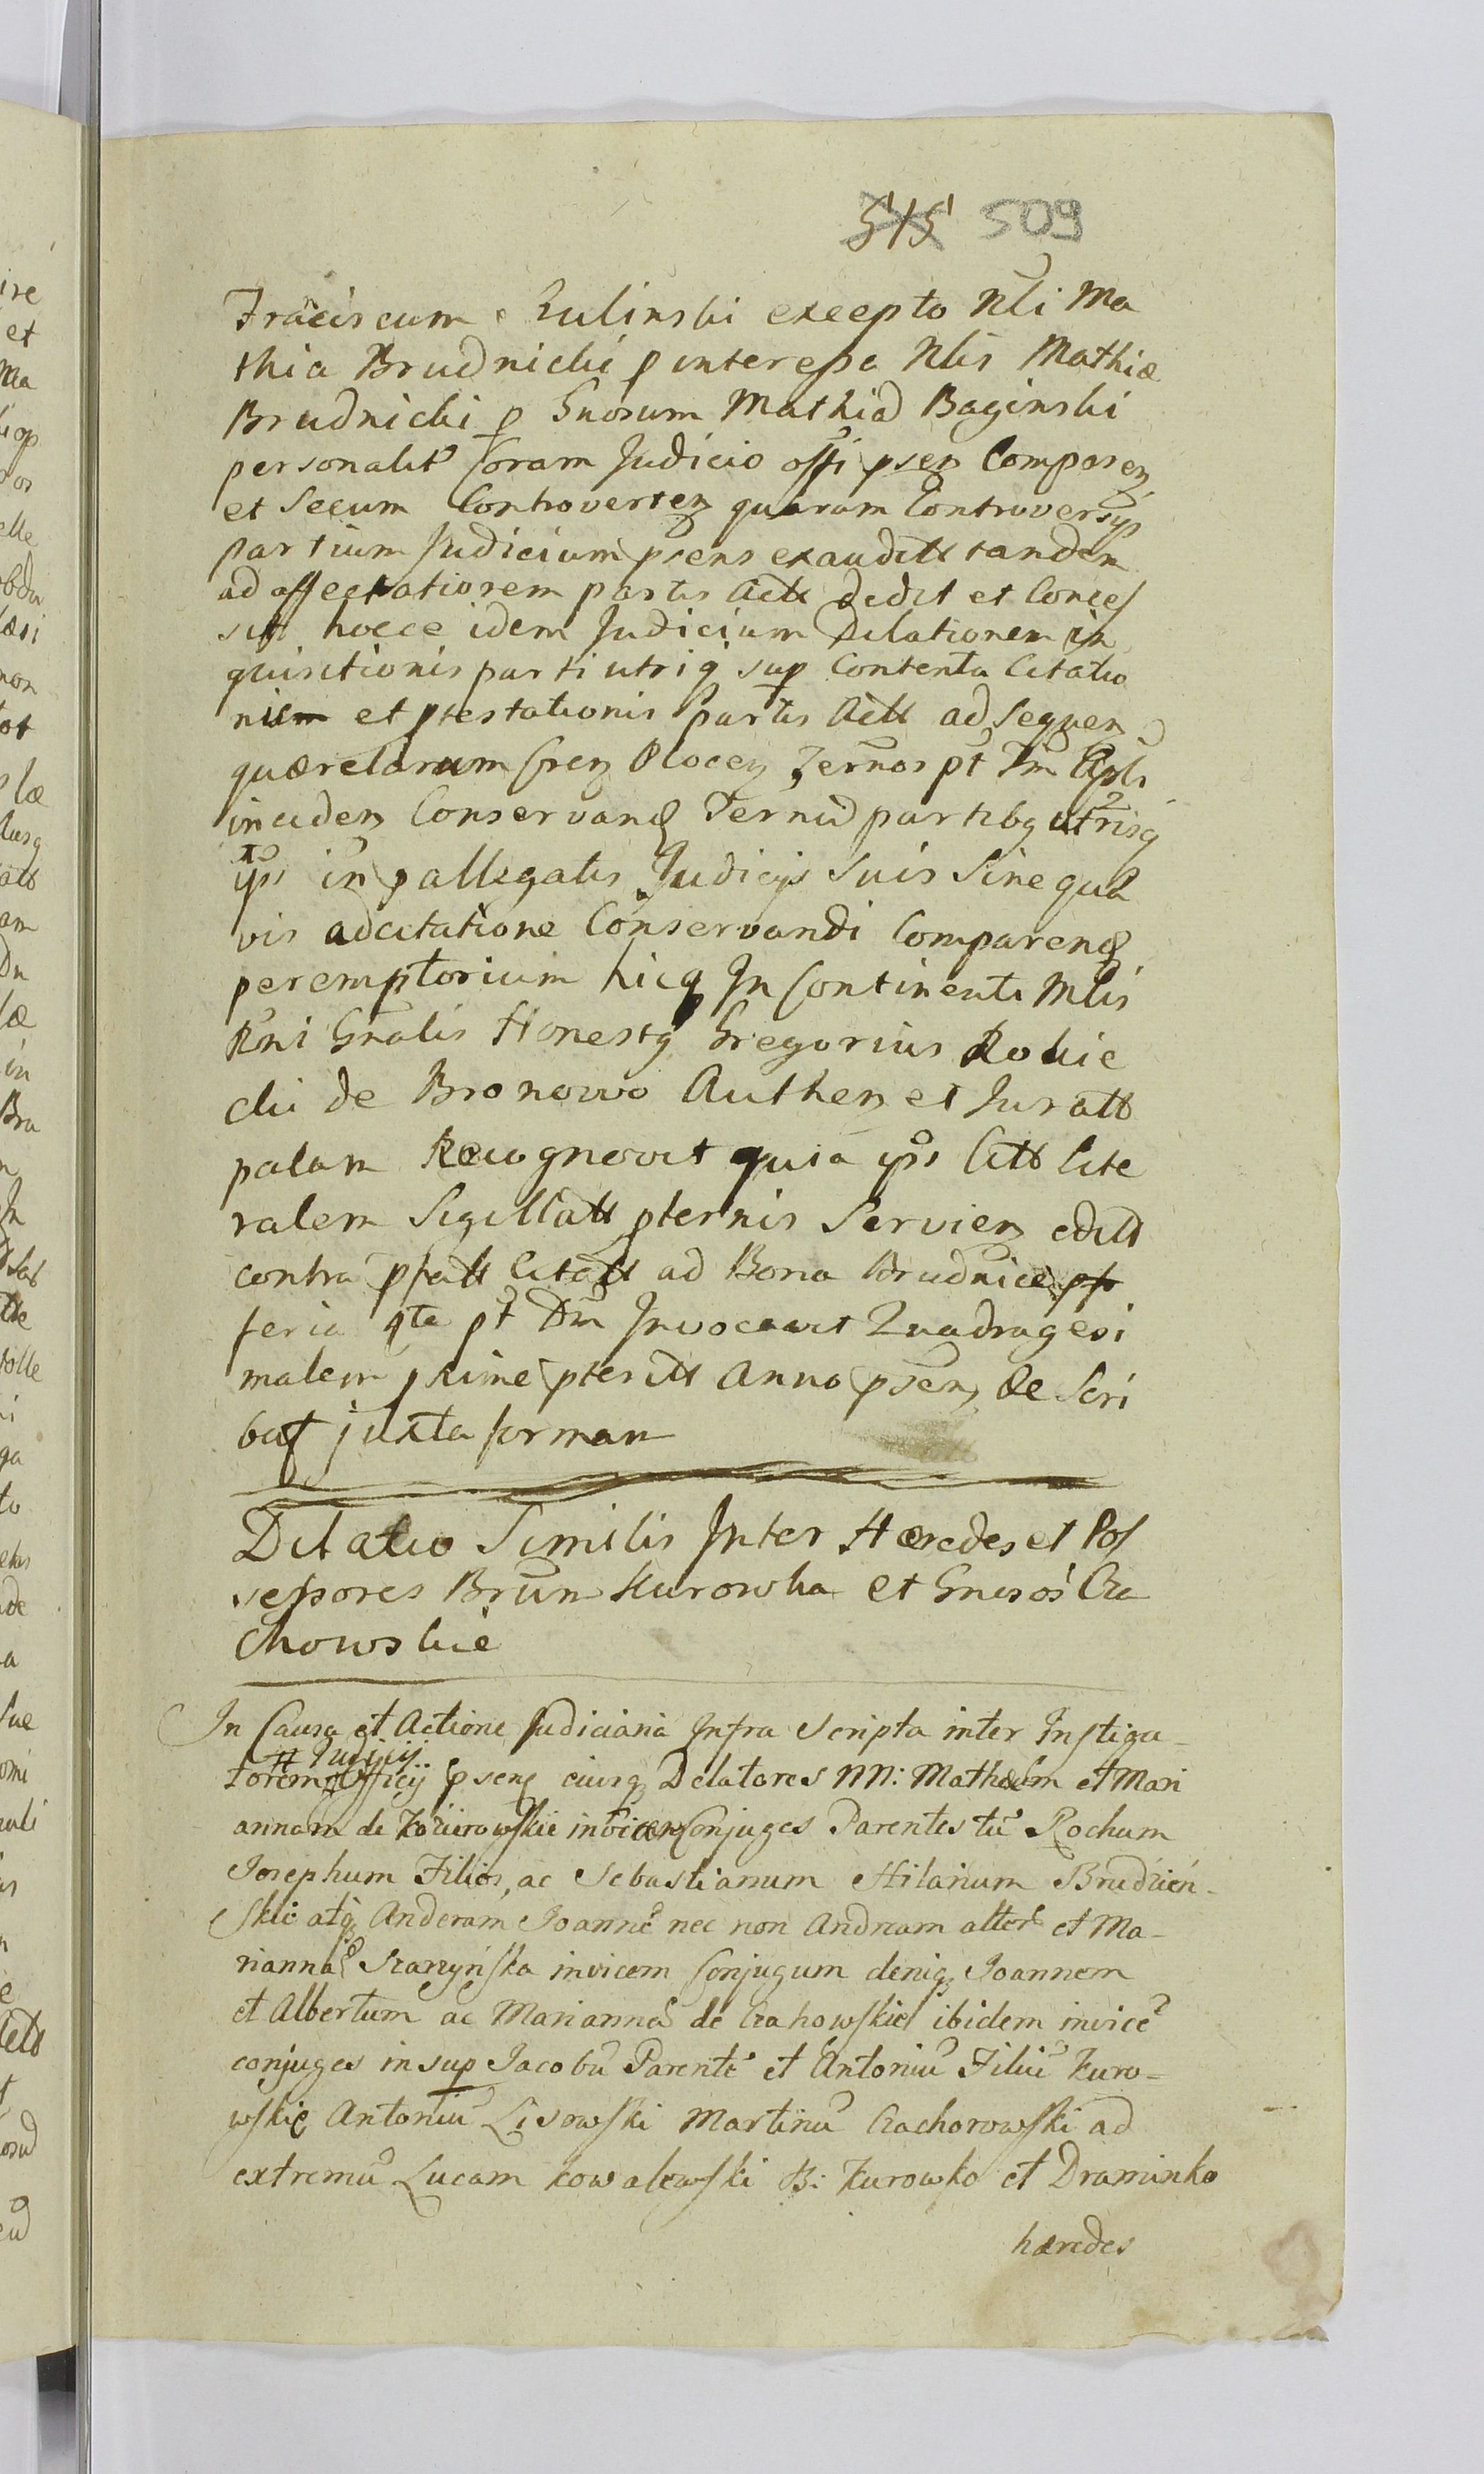 515 509
Franciscum Zulinski excepto Nli Ma
thia Brudnicki p interesse Nlis Mathiæ
Brudnicki p Gnosum Mathiā Baginski
personalit coram Judicio offi psen Comparen
et Secum Controverten quarum Controversys
partium Judicium psens exauditt tandem
ad affectationem partis Actt dedit et Conces
sit hocce idem Judicium Dilationem in
quisitionis parti utriq sup Contenta Citatio
nis et ptestationis partis Actt ad sequen
quærelarum Plocen Termos pt Apli
in eiden Conservand Termū partibq utrisq
ips in pallegatis Judicijs suis Sine qua
vis adcitatione Conservandi Comparend
peremptorium hicq In Continenti Mlis
Rni Gnalis Honestq Gregorius Rokic
cki de Bronowo Authen et Juratt
palam Recognovit quia ips Citt Lite
ralem Sigillatt pternis Servien editt
contra pfatt Citatt ad Bona Brudnice
feria qta pt Dm Invocavit Quadragesi
malem prime pteritt Anno psen De Scri
bat juxta forman
Dilatio Similis Inter Hæredes et Pos
sessores Brun Kurowka et Gnosos Cza
Chowskie
In Causa et Actione Judiciaria Infra Scripta inter Instiga-
Judicij
torem Officij psens eiusq Delatores NN: Mathæum et Mari
annam de Kozierowskie invicem Conjuges Parentes tū Rochum
Josephum Filios, ac Sebastianum Hilarium Brudzień-
skie atq Anderam Joannē nec non Andream alter et Ma-
riannā Starzyńska invicem Conjugum deniq Joannem
et Albertum ac Mariannā de Czahowskie ibidem invicē
conjuges in sup Jacobū Parentē et Antoniū Filiū Kuro-
wskie Antoniū Lisowski Martinū Czachorowski ad
extremū Lucam Kowalewski B: Kurowko et Draminko
hæredes